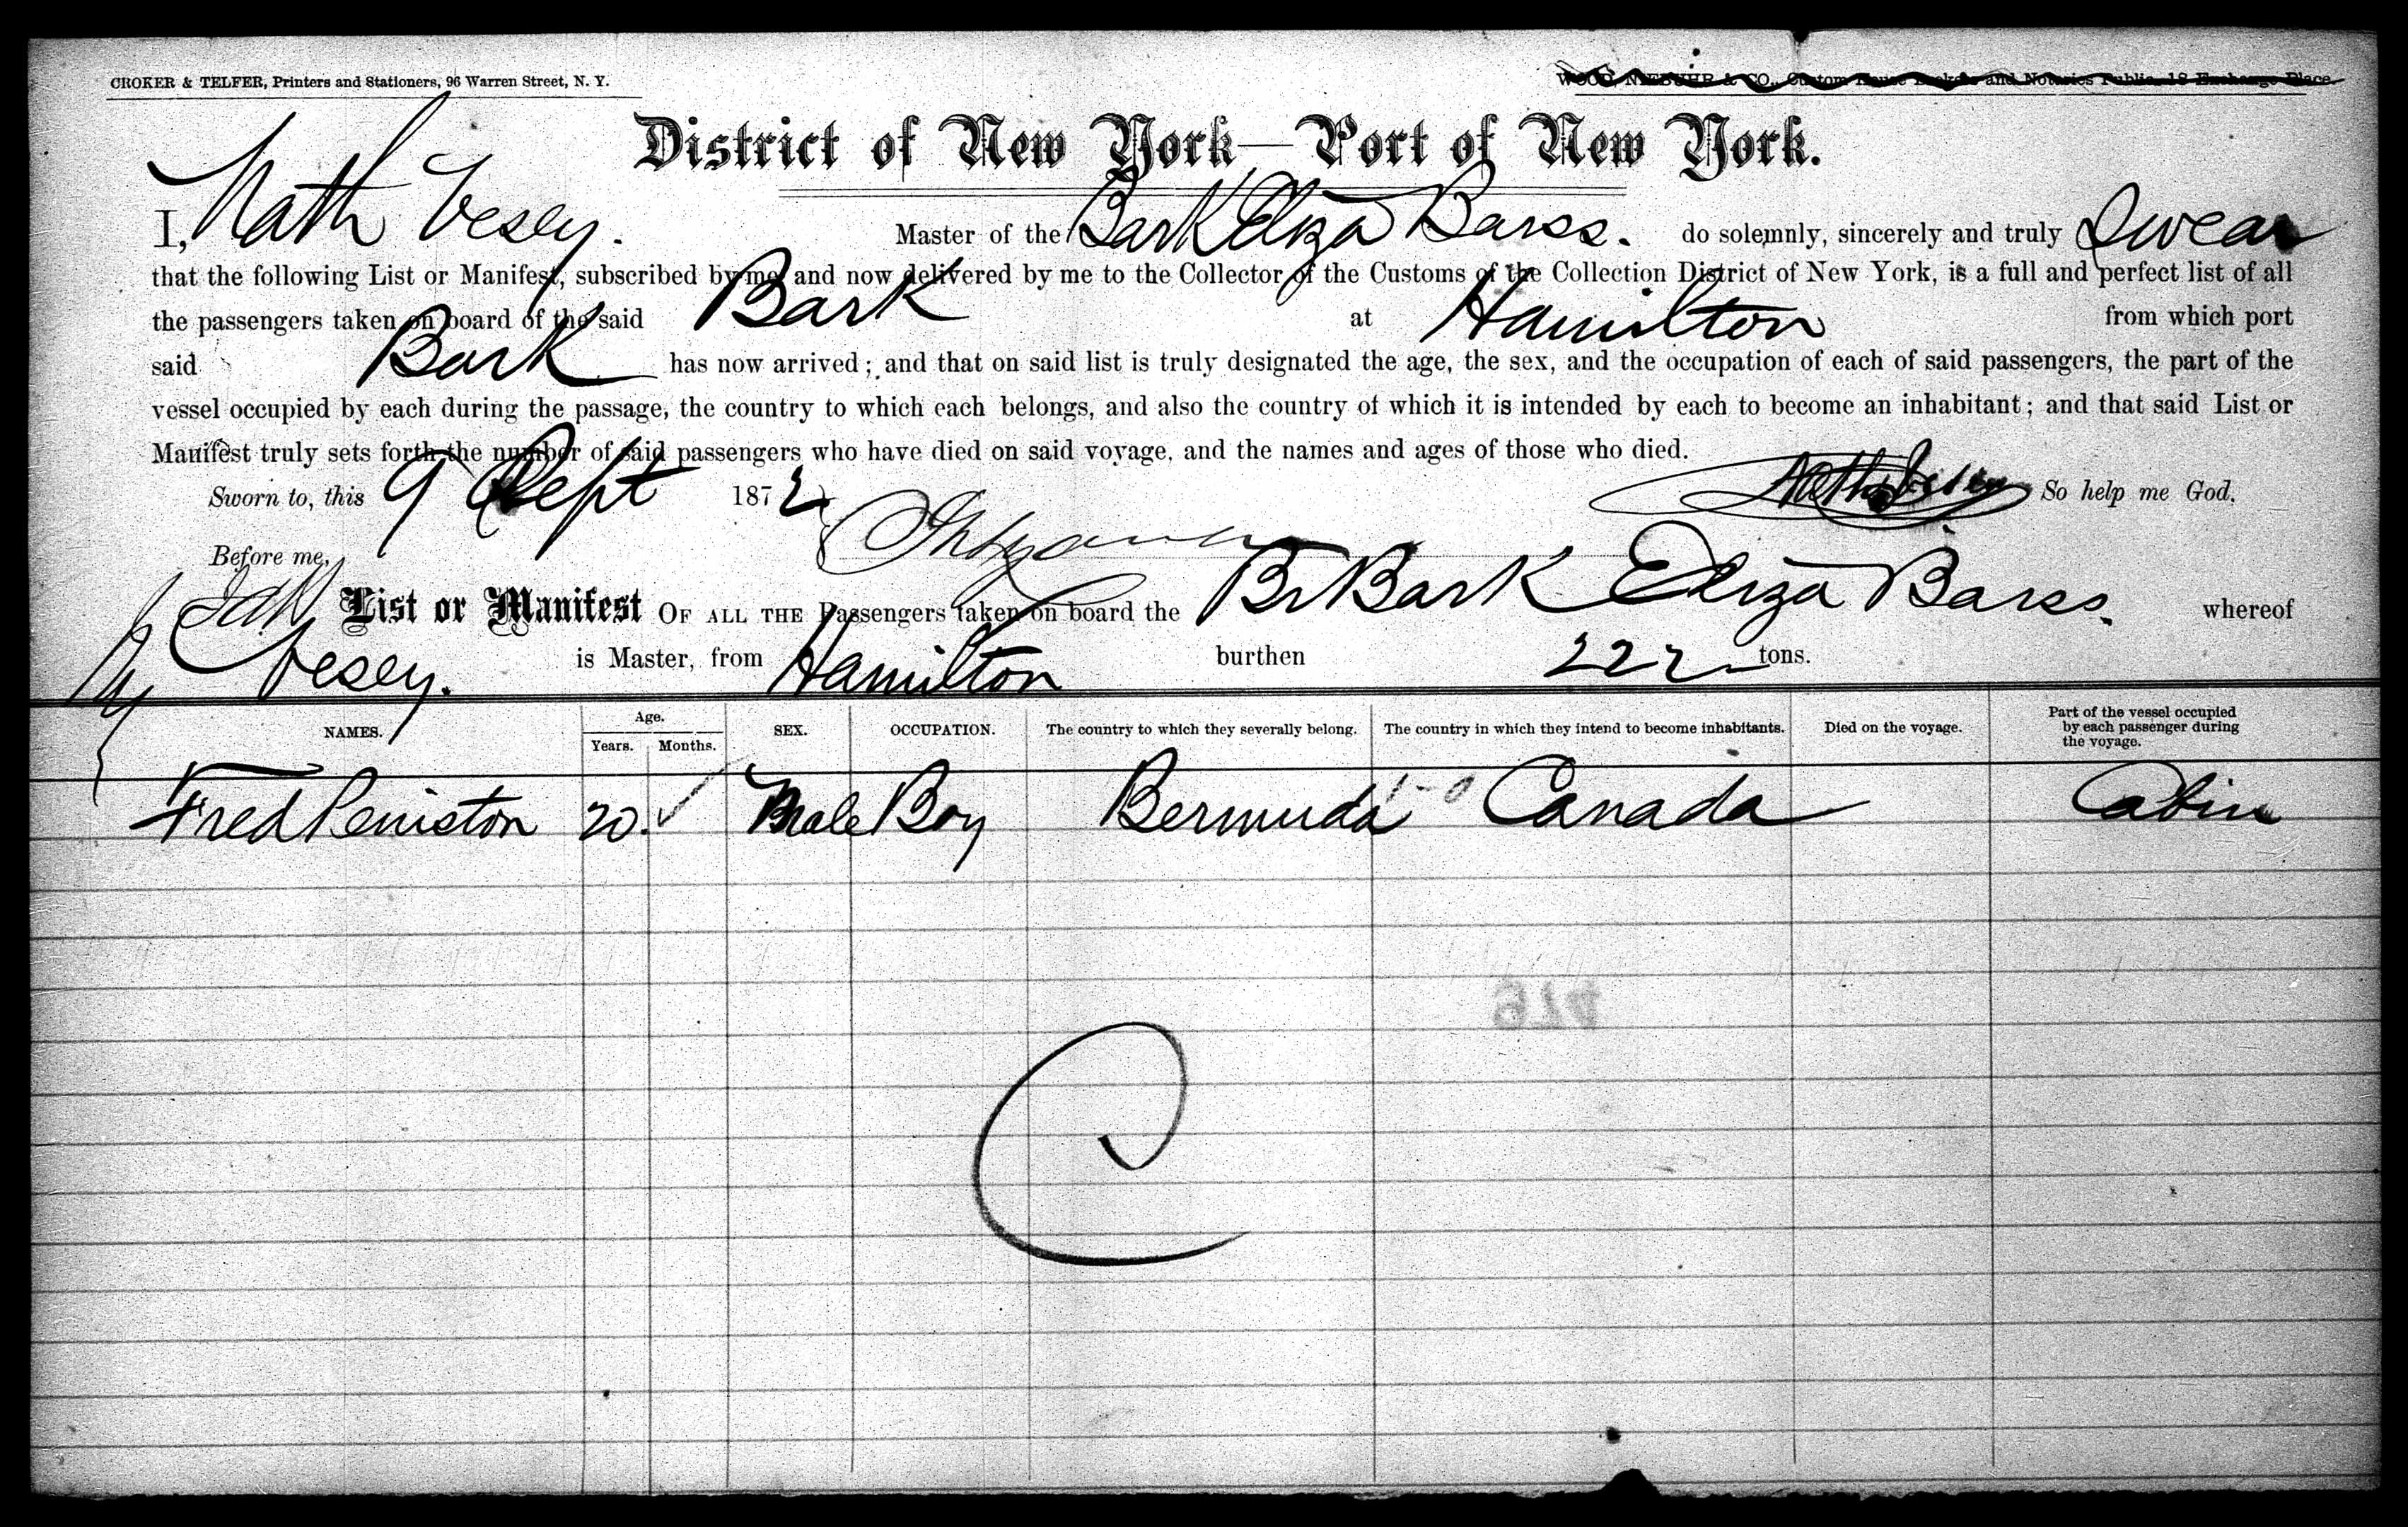 CROKER & TELFER, Printers and Stationers, 96 Warren Street, N. Y.
WOOD, NIEBUHR & CO., Custom House Brokers and Notaries Public, 18 Exchange Place.
District of New York—Port of New York.
I, Nath Vesey. Master of the Bark Eliza Barss. do solemnly, sincerely and truly Swear
that the following List or Manifest, subscribed by me, and now delivered by me to the Collector of the Customs of the Collection District of New York, is a full and perfect list of all
the passengers taken on board of the said Bark at Hamilton from which port
said Bark has now arrived; and that on said list is truly designated the age, the sex, and the occupation of each of said passengers, the part of the
vessel occupied by each during the passage, the country to which each belongs, and also the country of which it is intended by each to become an inhabitant; and that said List or
Manifest truly sets forth the number of said passengers who have died on said voyage, and the names and ages of those who died.
Sworn to, this 9 Sept 1872 Nath Vesey So help me God.
Before me,
List or Manifest OF ALL THE Passengers taken on board the Br Bark Eliza Barss. whereof
Vesey. is Master, from Hamilton burthen 222 tons.
NAMES. Age. Years. Months. SEX. OCCUPATION. The country to which they severally belong. The country in which they intend to become inhabitants. Died on the voyage. Part of the vessel occupied by each passenger during the voyage.
Fred Peniston 20 Male Boy Bermuda Canada Cabin
974
C